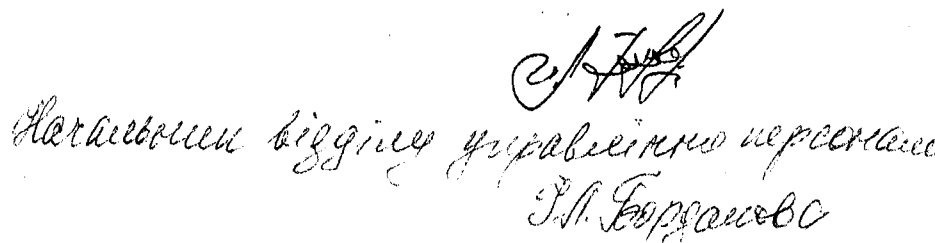 Начальник відділу управління персоналом
Р.Л. Бордакова